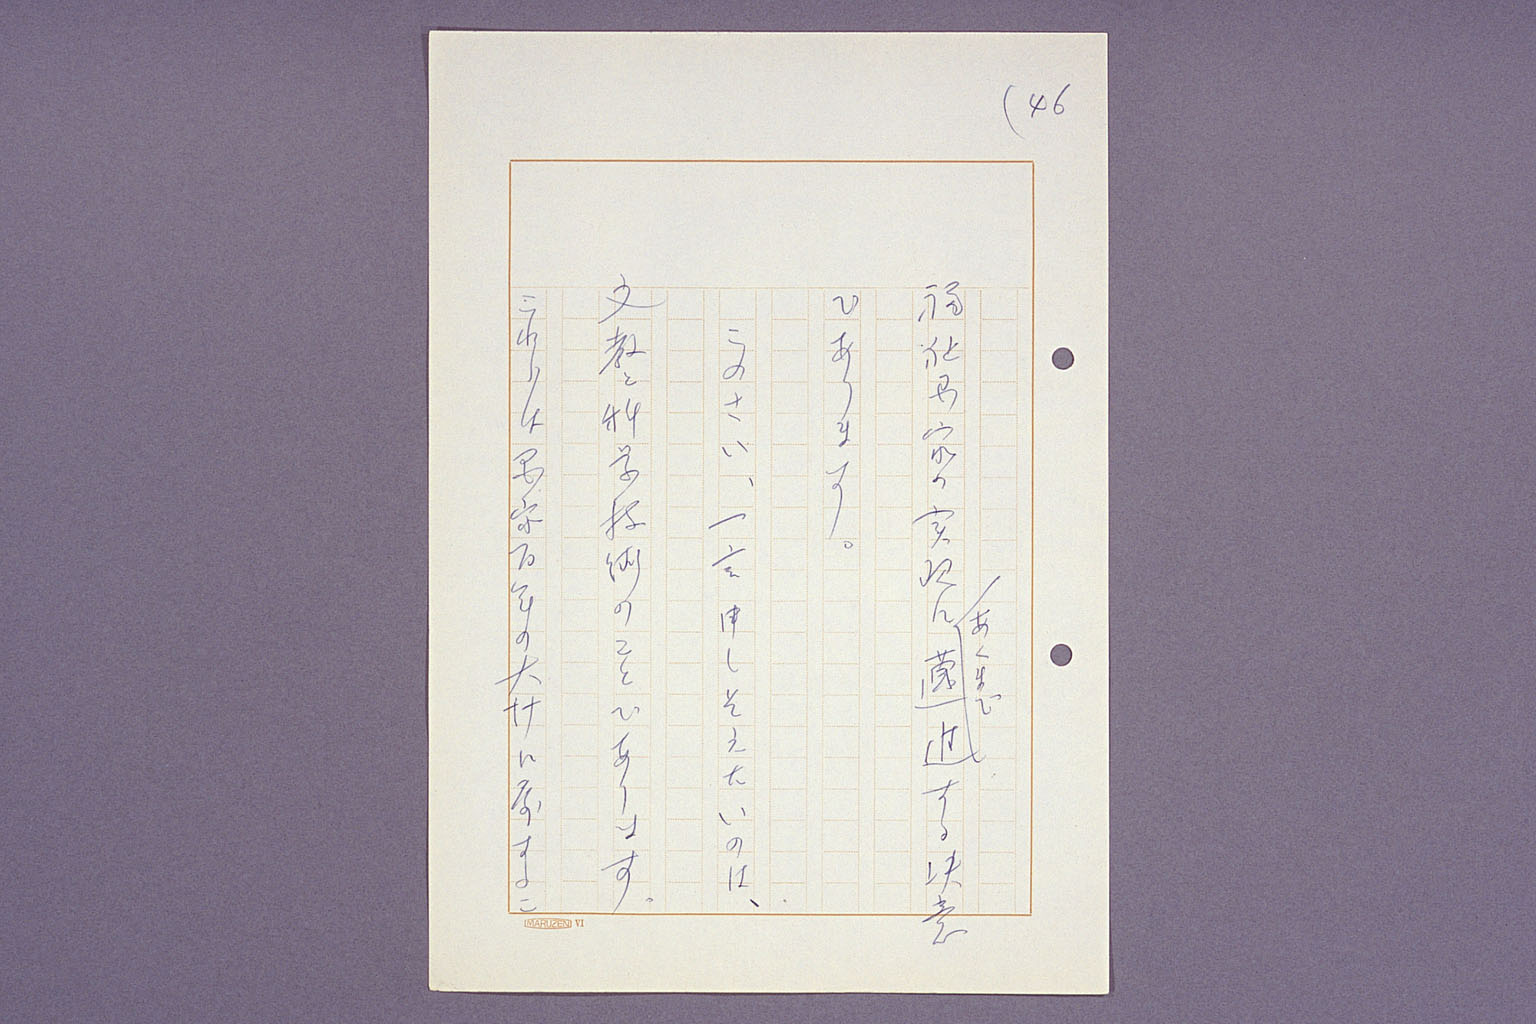 (46
福祉国家の実現にあくまで邁進する決意
であります。
このさい、一言申しそえたいのは、
文教と科学技術のことであります。
これらは国家百年の大計に属するこ
MARUZEN VI